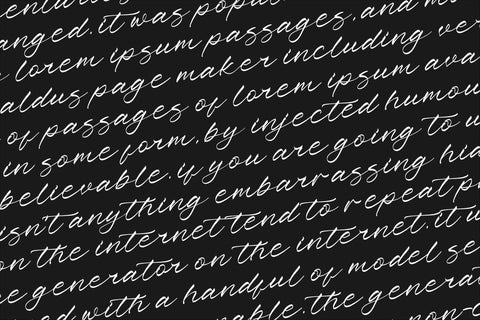 enturies
anged. it was popul
lorem ipsum passages, and m
aldus page maker including ver
of passages of lorem ipsum ava
in some form, by injected humou
believable. if you are going to u
isn't anything embarrassing hid
on the internet tend to repeat p
e generator on the internet. it u
ed with a handful of model se
nable. the generat
non-c